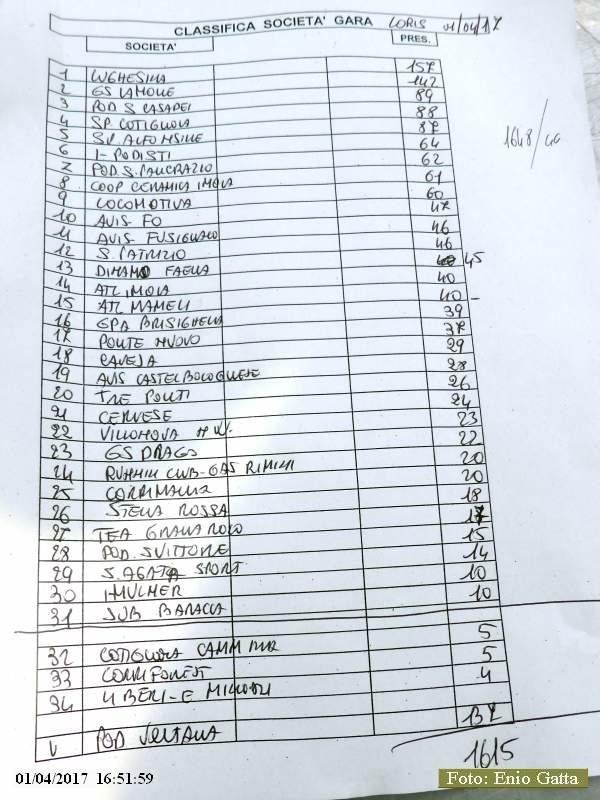 CLASSIFICA SOCIETA' GARA LORIS 01/04/17
SOCIETA' PRES.
1 LUGHESINA 157
2 GS LAMONE 142
3 POD S CASADEI 89
4 SP COTIGNOLA 88
5 SP ALFONSINE 87
6 I-PODISTI 64
7 POD S. PANCRAZIO 62
8 COOP CERAMICA IMOLA 61
9 LOCOMOTIVA 60
10 AVIS FO 47
11 AVIS FUSIGNANO 46
12 S. PATRIZIO 46
13 DINAMO FAENZA 45
14 ATL IMOLA 40
15 ATL MAMELI 40 -
16 GPA BRISIGHELLA 39
17 PONTE NUOVO 37
18 CAVEJA 29
19 AVIS CASTELBOLOGNESE 28
20 TRE PONTI 26
21 CERVESE 24
22 VILLANOVA 23
23 GS DRAGO 22
24 RUNNING CLUB-GAS RIMINI 20
25 CORRIMANIA 20
26 STELLA ROSSA 18
27 TEA GRANAROLO 17
28 POD. SVITTORE 15
29 S. AGATA SPORT 14
30 IMULNER 10
31 SUB BARACCA 10
32 COTIGNOLA CAMMINA 5
33 CORRIFORREST 5
34 4
V POD VOLTANA 137
1615
1648/
01/04/2017 16:51:59
Foto: Enio Gatta